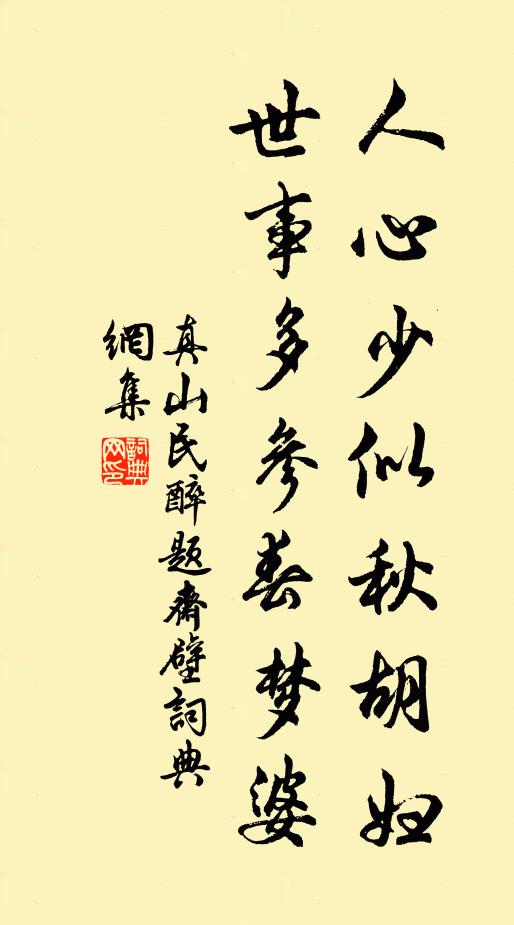 人心少似秋胡妇
世事多参春梦婆
真山民醉题斋壁詞典
網集
詞典网印